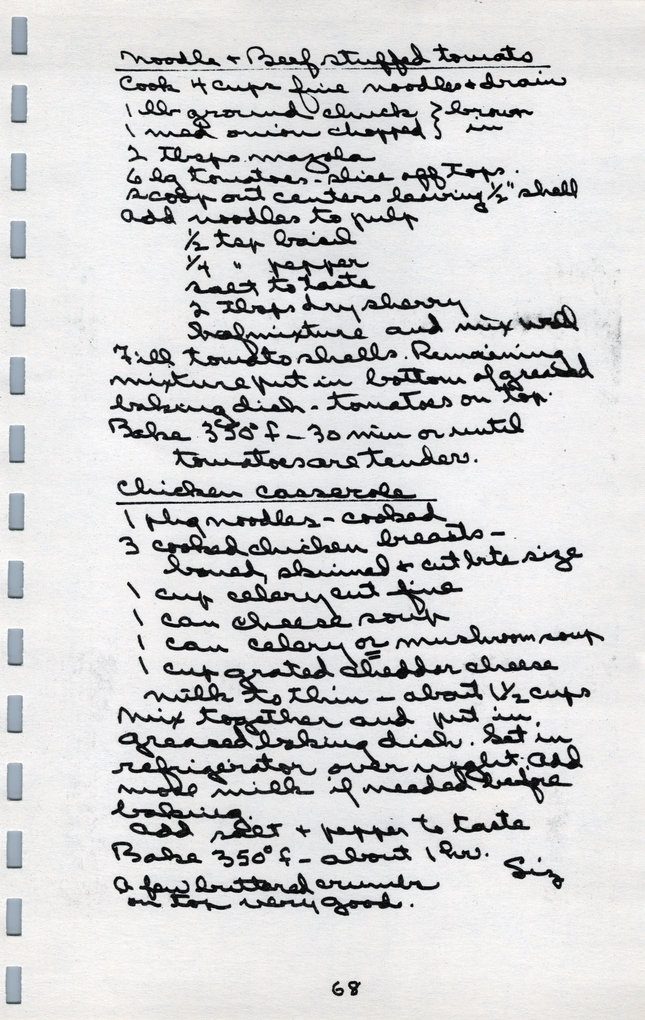 Noodle + Beef stuffed tomato
Cook 4 cups fine noodles + drain
1 lb ground chuck } brown
1 med onion chopped } in
2 tbsps. mazola
6 lg tomatoes - slice off tops.
Scoop out centers leaving ½" shell
add noodles to pulp
½ tsp basil
¼ " pepper
salt to taste
2 tbsps dry sherry
beef mixture and mix well
Fill tomato shells. Remaining
mixture put in bottom of greased
baking dish - tomatoes on top.
Bake 350° f - 30 min or until
tomatoes are tender.
Chicken casserole
1 pkg noodles - cooked
3 cooked chicken breasts -
boned, skinned + cut bite size
1 cup celery cut fine
1 can cheese soup
1 can celery or mushroom soup
1 cup grated cheddar cheese
milk to thin - about 1½ cups
Mix together and put in
greased baking dish. Set in
refrigerator over night. Add
more milk if needed before
baking.
add salt + pepper to taste
Bake 350° f - about 1 hr.
Siz
a few buttered crumbs
on top very good.
68